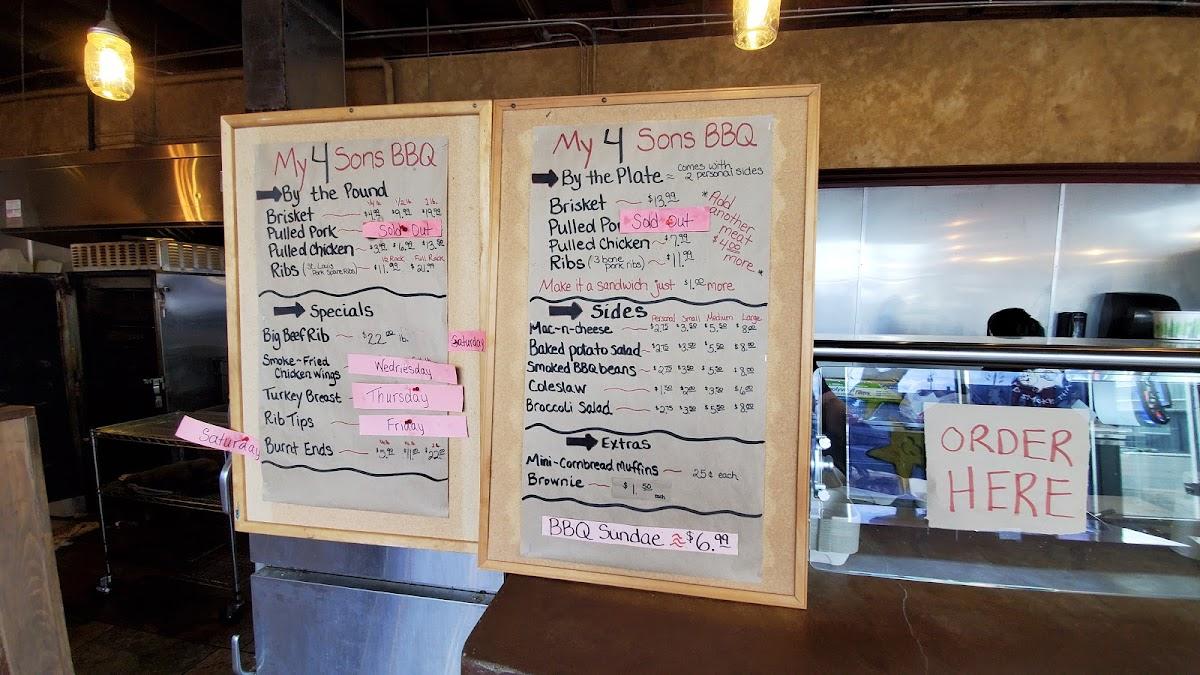 My 4 Sons BBQ
By the Pound
1/4 lb 1/2 lb 1 lb.
Brisket $4.99 $9.99 $19.99
Pulled Pork Sold Out
Pulled Chicken $3.99 $6.99 $13.99
1/2 Rack Full Rack
Ribs (St. Louis Pork Spare Ribs) $11.99 $21.99
Specials
Big Beef Rib $22.00 lb.
Saturday
Smoke-Fried
Chicken Wings Wednesday
Turkey Breast Thursday
Rib Tips Friday
Saturday
Burnt Ends $5.99 $11.00 $22.00
My 4 Sons BBQ
By the Plate ≈ comes with 2 personal sides
Brisket $13.99
Pulled Por Sold Out
Pulled Chicken $7.99
Ribs (3 bone pork ribs) $11.99
*Add
another
meat
$4.00
more*
Make it a sandwich just $1.00 more
Sides
Personal Small Medium Large
Mac-n-cheese $2.75 $3.50 $5.50 $8.00
Baked potato salad $2.75 $3.50 $5.50 $8.00
Smoked BBQ beans $2.75 $3.50 $5.50 $8.00
Coleslaw $1.50 $2.00 $3.50 $6.00
Broccoli Salad $2.75 $3.50 $5.50 $8.00
Extras
Mini-Cornbread Muffins 25¢ each
Brownie $1.50 each
BBQ Sundae ≈ $6.99
ORDER
HERE